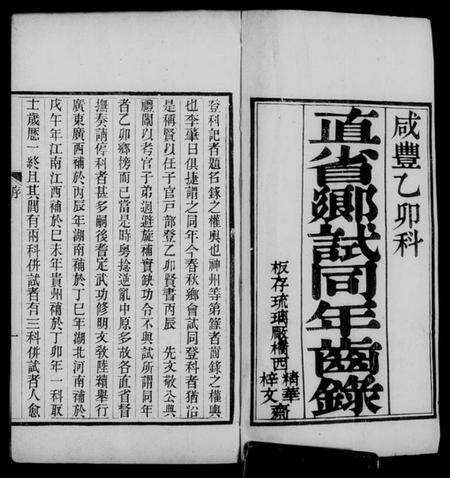 咸豐乙卯科
直省鄉試同年齒錄
板存琉璃廠橋西
精華齋
梓文齋
登科記者題名錄之權輿也神州等第錄者齒錄之權輿
也李肇曰俱捷謂之同年今春秋鄉會試同登科者猶沿
是稱賢以任子官戶部登乙卯賢書丙辰 先文敬公典
禮闈以考官子弟迴避旋補實缺功令不與試所謂同年
者乙卯鄉榜而已當是時粵捻逆亂中原多故各直省督
撫奏請停科者甚多嗣後耆定武功修明文敎陸續舉行
廣東廣西補於丙辰年湖南補於丁巳年湖北河南補於
戊午年江南江西補於己未年貴州補於丁卯年一科取
士歲歷一終且其閒有兩科併試者有三科併試者人愈
序
一